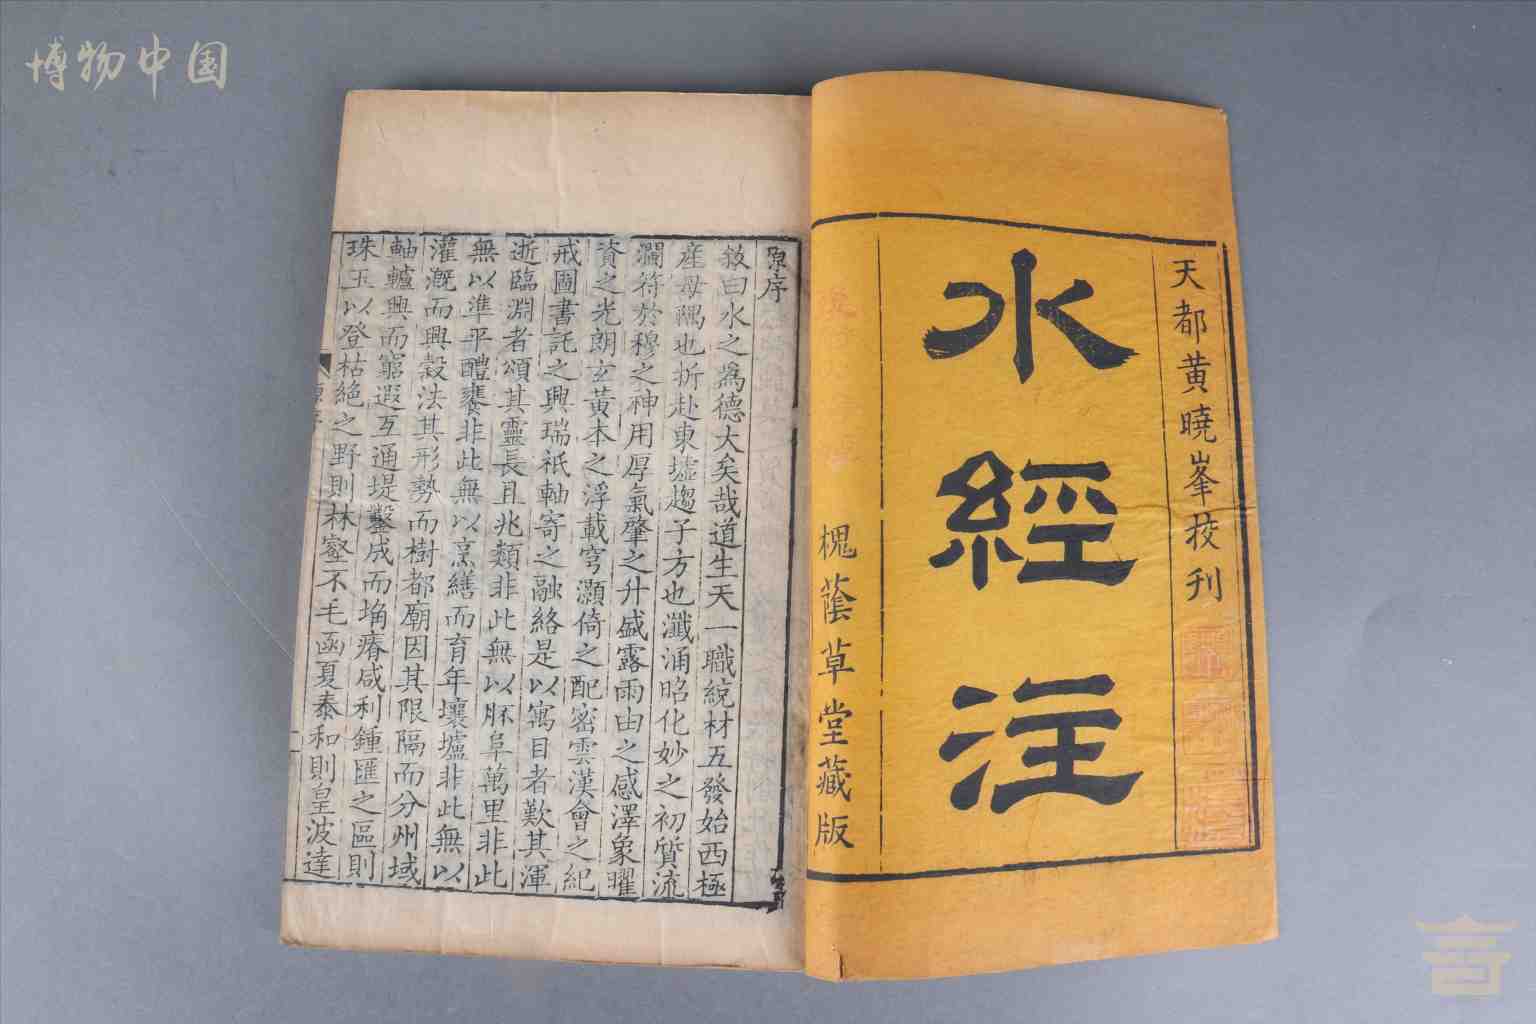 博物中国
天都黄曉峯挍刊
水經注
槐蔭草堂藏版
原序
敘曰水之為德大矣哉道生天一職統材五發始西極
産母隅也折赴東墟趨子方也瀸涌昭化妙之初質流
瀾符於穆之神用厚氣肇之升盛露雨由之感澤象曜
資之光朗玄黃本之浮載穹灝倚之配密雲漢會之紀
戒圖書託之興瑞祇軸寄之融絡是以寓目者歎其渾
逝臨淵者頌其靈長且兆類非此無以胚阜萬里非此
無以準平醴饔非此無以烹繕而育年壤壚非此無以
灌溉而興穀法其形勢而樹都廟因其限隔而分州域
軸轤興而窮遐互通堤鑿成而埆瘠咸利鍾匯之區則
珠玉以登枯絕之野則林壑不毛函夏泰和則皇波達